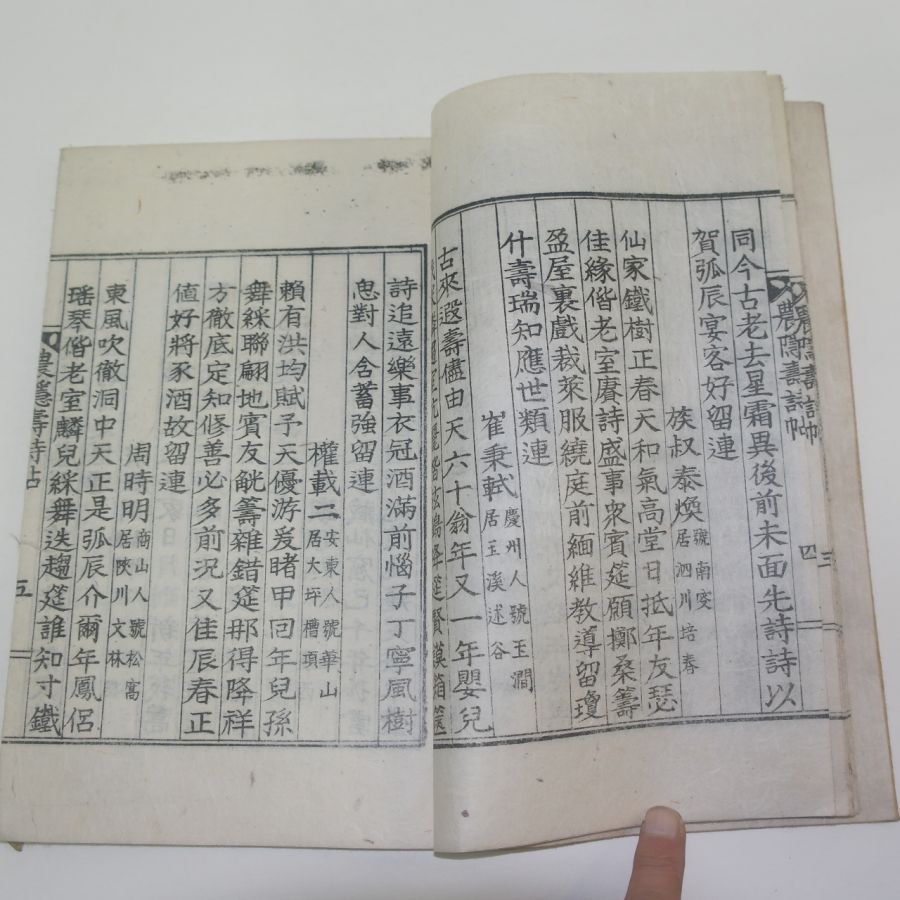 農隱壽詩帖
四
同今古老去星霜異後前未面先詩詩以
賀弧辰宴客好留連
族叔泰煥 號南窓 居泗川培春
仙家鐵樹正春天和氣高堂日抵年友瑟
佳緣偕老室賡詩盛事衆賓筵願擲桑籌
盈屋裏戲裁萊服繞庭前緬維教導留瓊
什壽瑞知應世類連
崔秉軾 慶州人號玉澗 居玉溪述谷
古來遐壽儘由天六十翁年又一年嬰兒
詩追遠樂事衣冠酒滿前惱子丁寧風樹
思對人含蓄強留連
權載二 安東人號華山 居大坪槽項
賴有洪均賦予天優游爰睹甲回年兒孫
舞綵聯翩地賓友觥籌雜錯筵那得降祥
方徹底定知修善必多前況又佳辰春正
値好將豕酒故留連
周時明 商山人號松窩 居陜川文林
東風吹徹洞中天正是弧辰介爾年鳳侶
瑤琴偕老室麟兒綵舞迭趨筵誰知寸鐵
農隱壽詩帖
五